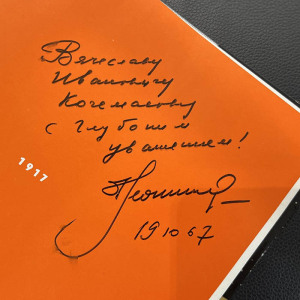 Вячеславу
Ивановичу
Кочемасову
с глубоким
уважением!
19 10 67
1917